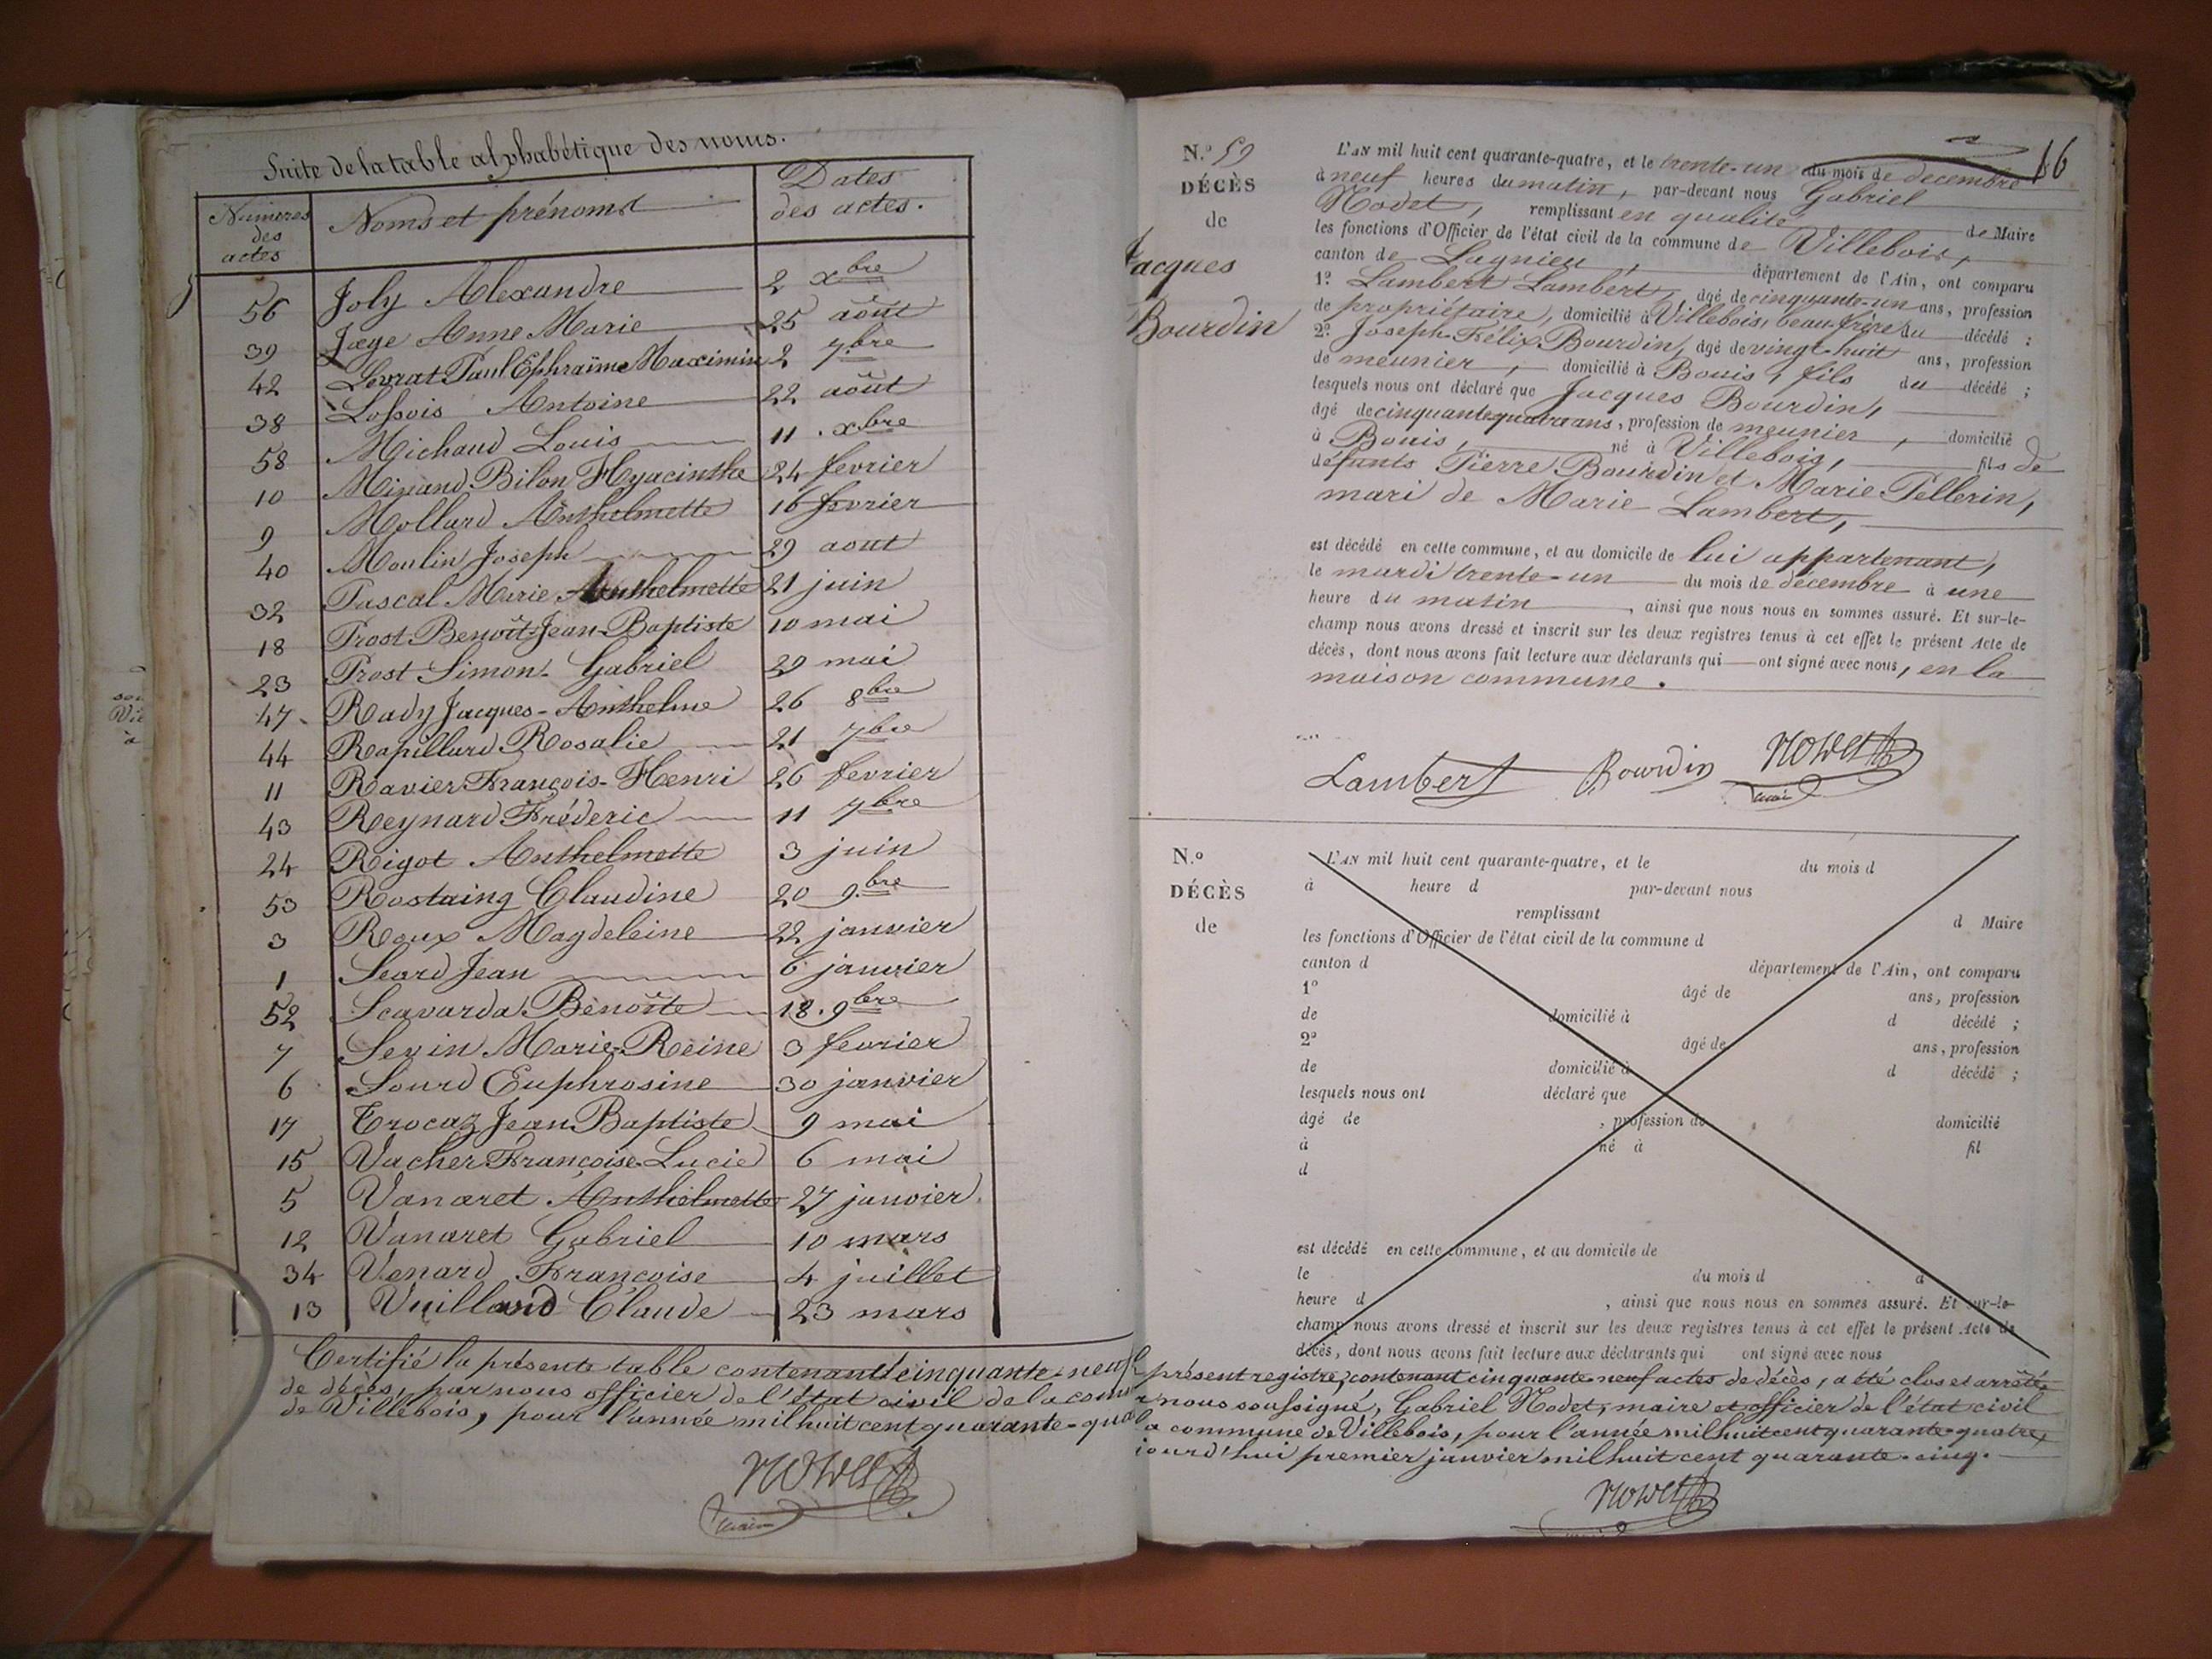 Suite de la table alphabétique des noms.
Numéros des actes | Noms et prénoms | Dates des actes.
56 Joly Alexandre 2 xbre
39 Jæge Anne Marie 25 août
42 Levrat Paul Ephraïme Maximin 2 7bre
38 Lossois Antoine 22 août
58 Michaud Louis 11 . xbre
10 Minand Bilon Hyacinthe 24 fevrier
9 Mollard Anthelmette 16 fevrier
40 Moulin Joseph 29 aout
32 Pascal Marie Anthelmette 21 juin
18 Prost Benoît-Jean-Baptiste 10 mai
23 Prost Simon-Gabriel 29 mai
47 Rady Jacques-Anthelme 26 8bre
44 Rapillard Rosalie 21 7bre
11 Ravier François-Henri 26 fevrier
43 Reynard Fréderic 11 7bre
24 Rigot Anthelmette 3 juin
53 Rostaing Claudine 20 9bre
3 Roux Magdeleine 22 janvier
1 Seard Jean 6 janvier
52 Scavarda Benoîte 18. 9bre
7 Sevin Marie-Reine 3 fevrier
6 Sourd Euphrosine 30 janvier
17 Trocaz Jean Baptiste 9 mai
15 Vacher Françoise-Lucie 6 mai
5 Vanaret Anthelmette 27 janvier
12 Vanaret Gabriel 10 mars
34 Venard Françoise 4 juillet
13 Vuillard Claude 23 mars
Certifié la présente table contenant cinquante-neuf
de décès, par nous officier de l'état civil de la comm
de Villebois, pour l'année mil huit cent quarante-qua
Nodet
maire
16
N.º 59
DÉCÈS
de
Jacques
Bourdin
L'AN mil huit cent quarante-quatre, et le trente-un du mois de decembre
à neuf heures du matin, par-devant nous Gabriel
Nodet, remplissant en qualité de Maire
les fonctions d'Officier de l'état civil de la commune de Villebois,
canton de Lagnieu, département de l'Ain, ont comparu
1º Lambert Lambert, âgé de cinquante-un ans, profession
de propriétaire, domicilié à Villebois, beau-frère du décédé ;
2º Joseph-Félix Bourdin, âgé de vingt-huit ans, profession
de meunier, domicilié à Bouis, fils du décédé ;
lesquels nous ont déclaré que Jacques Bourdin,
âgé de cinquante quatre ans, profession de meunier, domicilié
à Bouis, né à Villebois, fils de
défunts Pierre Bourdin et Marie Pellerin,
mari de Marie Lambert,
est décédé en cette commune, et au domicile de lui appartenant,
le mardi trente-un du mois de décembre à une
heure du matin, ainsi que nous nous en sommes assuré. Et sur-le-
champ nous avons dressé et inscrit sur les deux registres tenus à cet effet le présent Acte de
décès, dont nous avons fait lecture aux déclarants qui ont signé avec nous, en la
maison commune.
Lambert Bourdin Nodet
maire
N.º
DÉCÈS
de
L'AN mil huit cent quarante-quatre, et le du mois d
à heure d par-devant nous
remplissant d Maire
les fonctions d'Officier de l'état civil de la commune d
canton d département de l'Ain, ont comparu
1º âgé de ans, profession
de domicilié à d décédé ;
2º âgé de ans, profession
de domicilié à d décédé ;
lesquels nous ont déclaré que
âgé de , profession de domicilié
à né à fil
d
est décédé en cette commune, et au domicile de
le du mois d à
heure d , ainsi que nous nous en sommes assuré. Et sur-le-
champ nous avons dressé et inscrit sur les deux registres tenus à cet effet le présent Acte de
décès, dont nous avons fait lecture aux déclarants qui ont signé avec nous
présent registre, contenant cinquante-neuf actes de décès, a été clos et arrêté
r nous soussigné, Gabriel Nodet, maire et officier de l'état civil
a commune de Villebois, pour l'année mil huit cent quarante-quatre,
jourd'hui premier janvier mil huit cent quarante-cinq.
Nodet